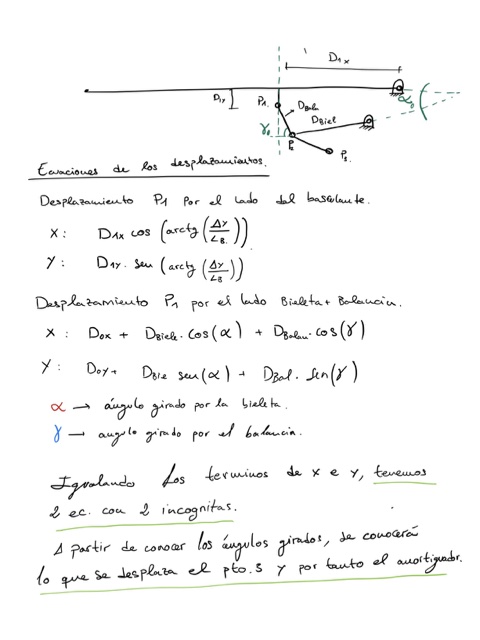 D1x
D1y
P1.
DBala
DBiel
α0
γ0
P2
P3.
Ecuaciones de los desplazamientos.
Desplazamiento P1 por el lado del basculante.
X: D1x cos (arctg (Δy/LB.))
Y: D1y. sen (arctg (Δy/LB))
Desplazamiento P1 por el lado Bieleta + Balancín.
X: Dox + DBiele. cos(α) + DBalan. cos(γ)
Y: Doy + DBie sen(α) + DBal. sen(γ)
α → ángulo girado por la bieleta.
γ → angulo girado por el balancín.
Igualando los terminos de x e y, tenemos
2 ec. con 2 incognitas.
A partir de conocer los ángulos girados, se conocerá
lo que se desplaza el pto.3 y por tanto el amortiguador.